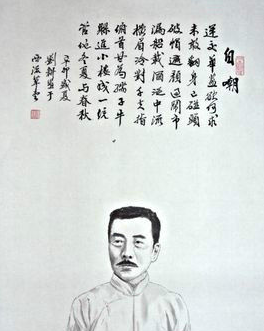 自嘲
運交華蓋欲何求
未敢翻身已碰頭
破帽遮顏過鬧市
漏船載酒泛中流
橫眉冷對千夫指
俯首甘為孺子牛
躲進小樓成一統
管他冬夏與春秋
辛卯盛夏
劉